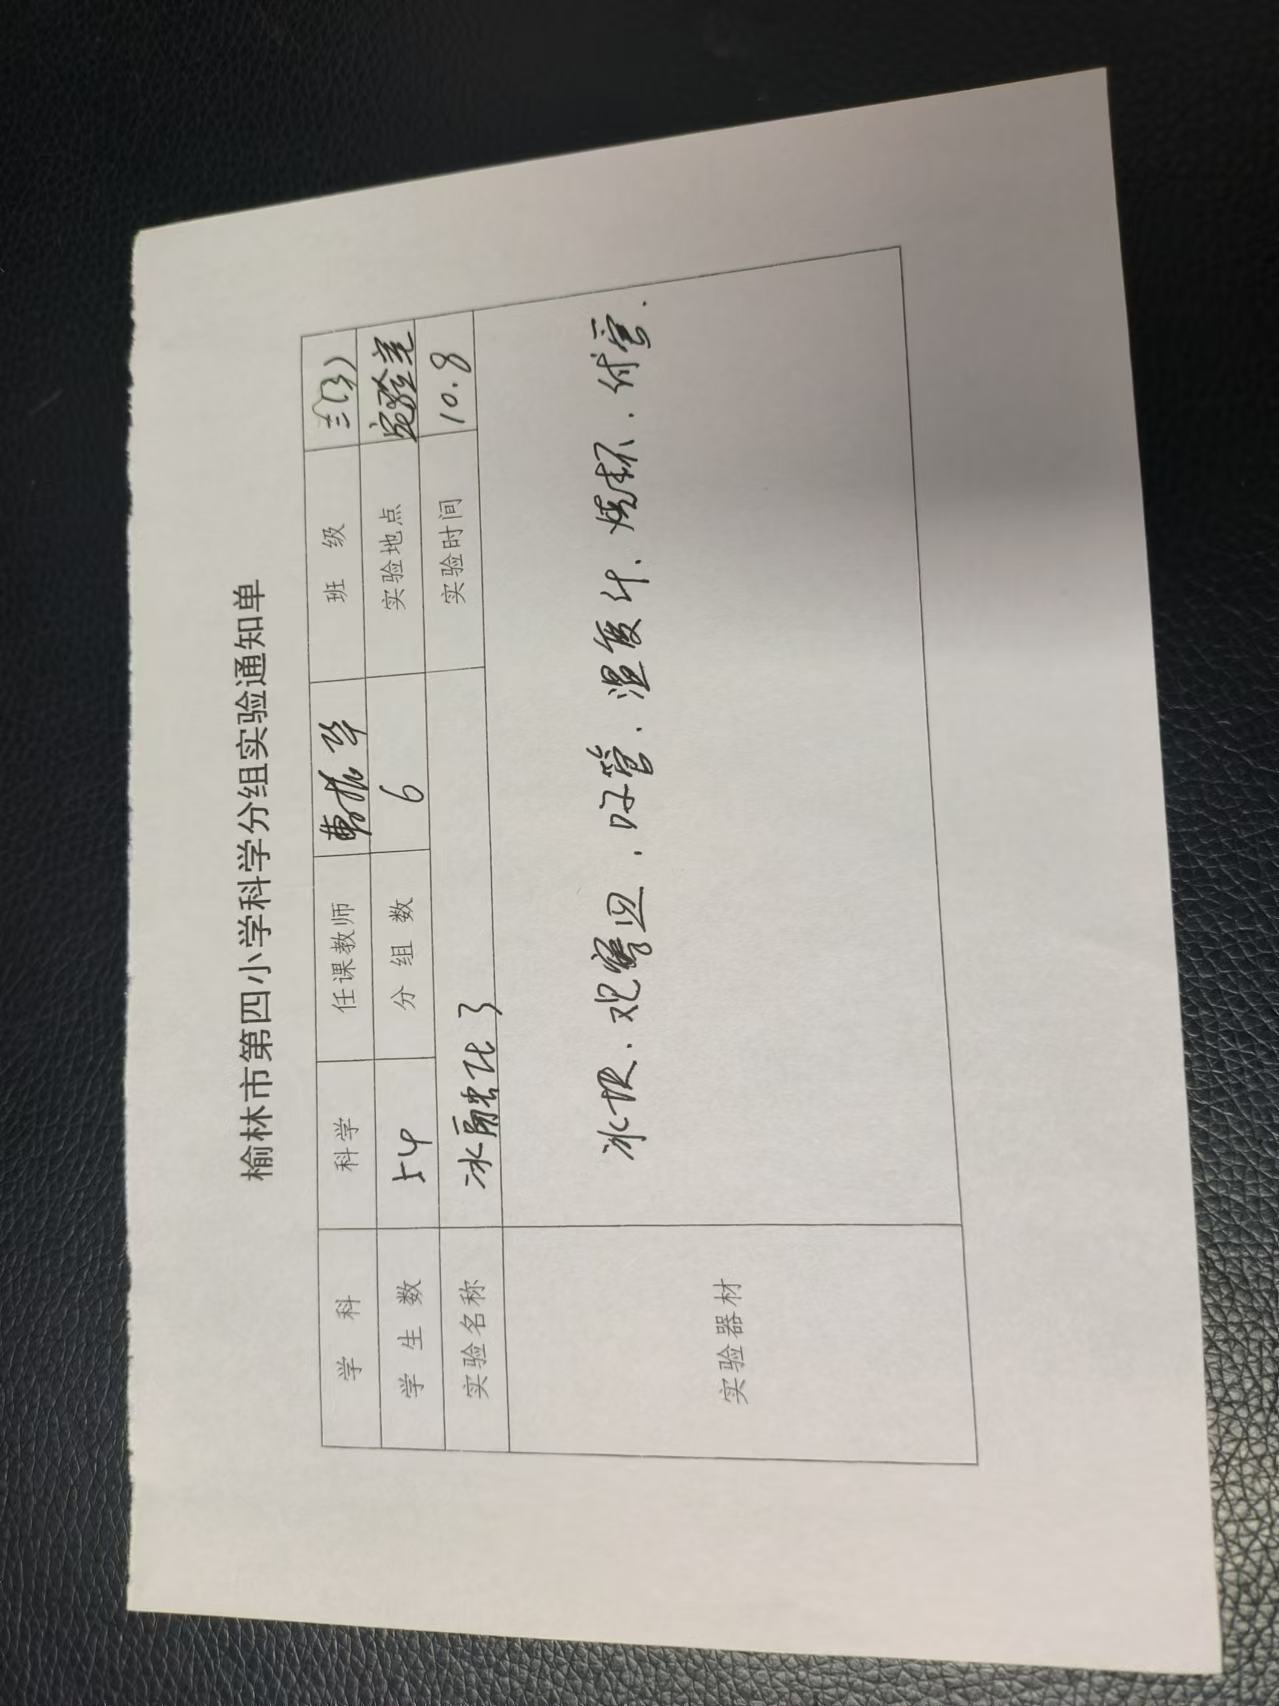 榆林市第四小学科学分组实验通知单
学 科 科学 任课教师 曹振华 班 级
学 生 数 54 分 组 数 6 实验地点 实验室
实验名称 冰融化了 实验时间 10.8
实验器材 冰块、观察皿、吸管、温度计、烧杯、试管.